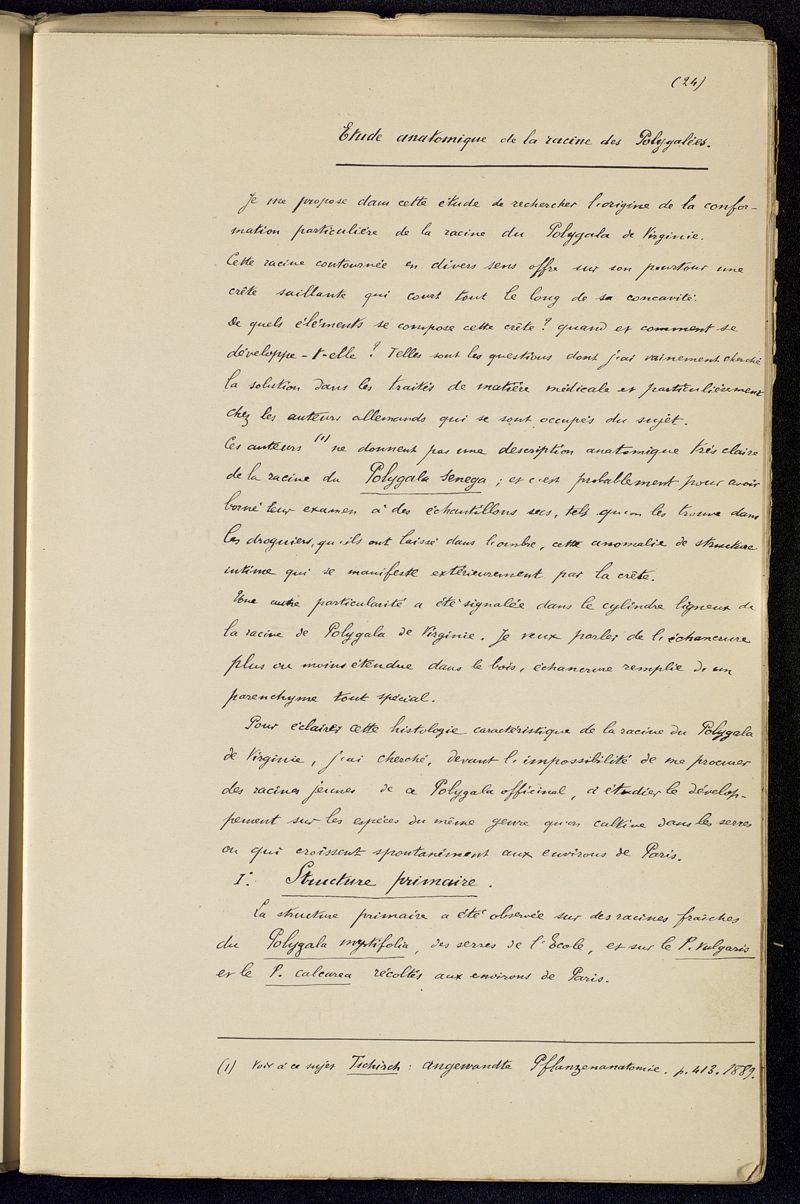 (24)
Etude anatomique de la racine des Polygalées.
Je me propose dans cette étude de rechercher l'origine de la confor-
mation particulière de la racine du Polygala de Virginie.
Cette racine contournée en divers sens offre sur son pourtour une
crête saillante qui court tout le long de sa concavité.
De quels éléments se compose cette crête ? quand et comment se
développe-t-elle ? Telles sont les questions dont j'ai vainement cherché
la solution dans les traités de matière médicale et particulièrement
chez les auteurs allemands qui se sont occupés du sujet.
Ces auteurs (1) ne donnent pas une description anatomique très claire
de la racine du Polygala Senega ; et c'est probablement pour avoir
borné leur examen à des échantillons secs, tels qu'on les trouve dans
les droguiers, qu'ils ont laissé dans l'ombre, cette anomalie de structure
intime qui se manifeste extérieurement par la crête.
Une autre particularité a été signalée dans le cylindre ligneux de
la racine de Polygala de Virginie. Je veux parler de l'échancrure
plus ou moins étendue dans le bois, échancrure remplie de un
parenchyme tout spécial.
Pour éclairer cette histologie caractéristique de la racine du Polygala
de Virginie, j'ai cherché, devant l'impossibilité de me procurer
des racines jeunes de ce Polygala officinal, à étudier le dévelop-
pement sur les espèces du même genre qu'on cultive dans les serres
ou qui croissent spontanément aux environs de Paris.
I°. Structure primaire.
La structure primaire a été observée sur des racines fraîches
du Polygala myrtifolia, des serres de l'Ecole, et sur le P. vulgaris
et le P. calcarea récoltés aux environs de Paris.
(1) Voir à ce sujet Tschirch : angewandte Pflanzenanatomie. p. 413. 1889.